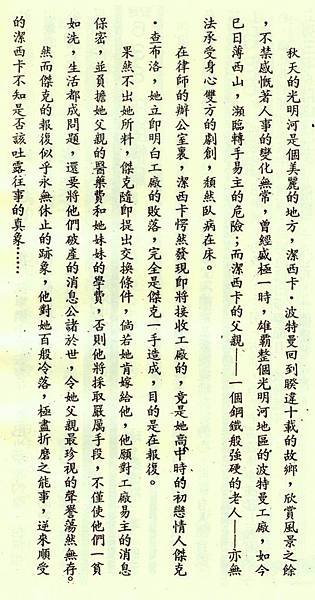 秋天的光明河是個美麗的地方，潔西卡・波特曼回到睽違十載的故鄉，欣賞風景之餘
，不禁感慨著人事的變化無常，曾經盛極一時，雄霸整個光明河地區的波特曼工廠，如今
已日薄西山，瀕臨轉手易主的危險；而潔西卡的父親——一個鋼鐵般強硬的老人——亦無
法承受身心雙方的劇創，頹然臥病在床。
在律師的辦公室裏，潔西卡愕然發現即將接收工廠的，竟是她高中時的初戀情人傑克
・查布洛，她立即明白工廠的敗落，完全是傑克一手造成，目的是在報復。
果然不出她所料，傑克隨即提出交換條件，倘若她肯嫁給他，他願對工廠易主的消息
保密，並負擔她父親的醫藥費和她妹妹的學費，否則他將採取嚴厲手段，不僅使他們一貧
如洗，生活都成問題，還要將他們破產的消息公諸於世，令她父親最珍視的聲譽蕩然無存。
然而傑克的報復似乎永無休止的跡象，他對她百般冷落，極盡折磨之能事，逆來順受
的潔西卡不知是否該吐露往事的真象……